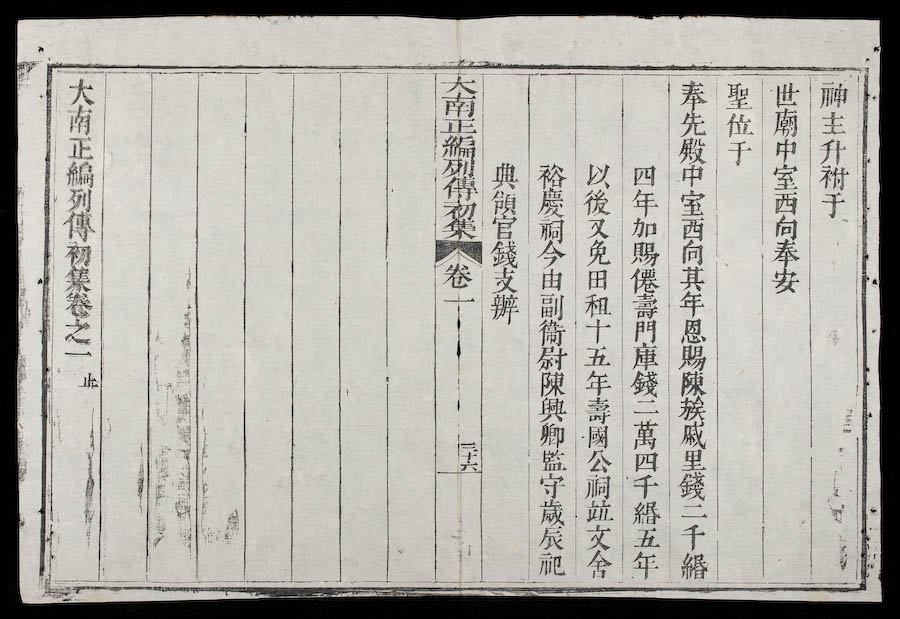 神主升祔于
世廟中室西向奉安
聖位于
奉先殿中室西向其年恩賜陳族戚里錢二千緡
四年加賜僊壽門庫錢二萬四千緡五年
以後又免田租十五年壽國公祠竝文舍
裕慶祠今由副衞尉陳興卿監守歲辰祀
典領官錢支辦
大南正編列傳初集 卷一 三十六
大南正編列傳初集卷之一 止